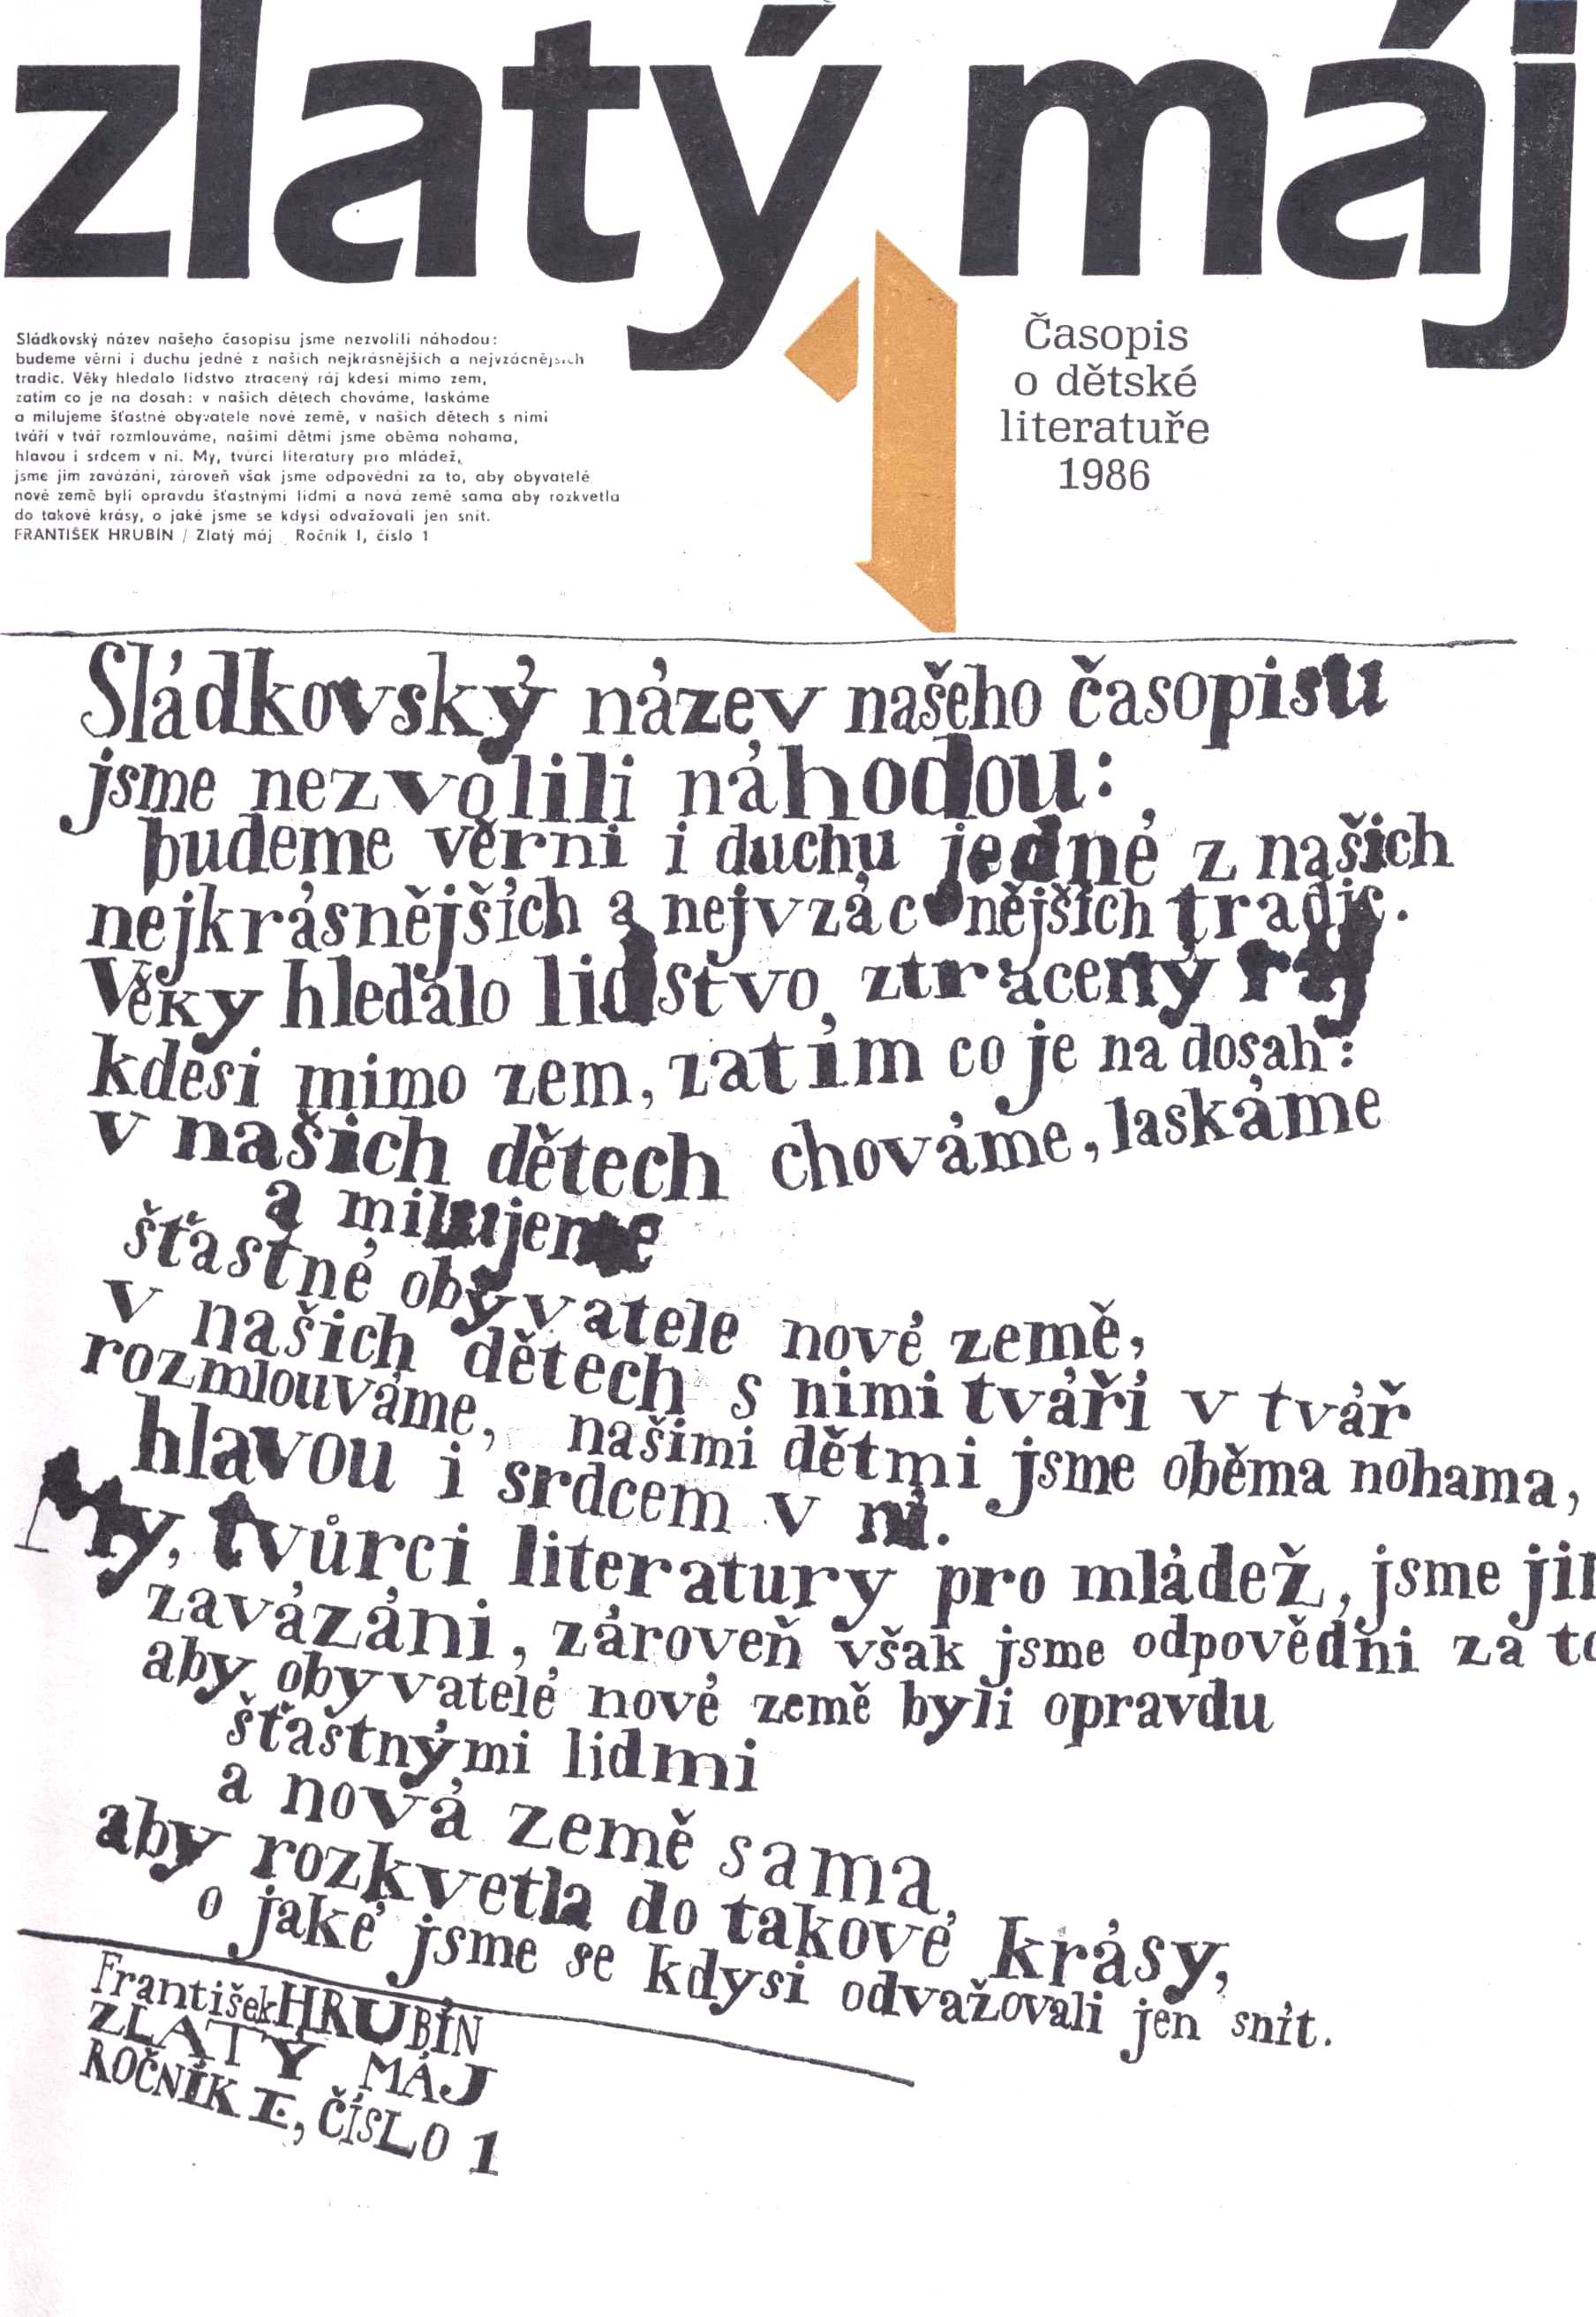 zlatý máj
1
Sládkovský název našeho časopisu jsme nezvolili náhodou:
budeme věrni i duchu jedné z našich nejkrásnějších a nejvzácnějších
tradic. Věky hledalo lidstvo ztracený ráj kdesi mimo zem,
zatím co je na dosah: v našich dětech chováme, laskáme
a milujeme šťastné obyvatele nové země, v našich dětech s nimi
tváří v tvář rozmlouváme, našimi dětmi jsme oběma nohama,
hlavou i srdcem v ní. My, tvůrci literatury pro mládež,
jsme jim zavázáni, zároveň však jsme odpovědni za to, aby obyvatelé
nové země byli opravdu šťastnými lidmi a nová země sama aby rozkvetla
do takové krásy, o jaké jsme se kdysi odvažovali jen snít.
FRANTIŠEK HRUBÍN / Zlatý máj Ročník I, číslo 1
Časopis
o dětské
literatuře
1986
Sládkovský název našeho časopisu
jsme nezvolili náhodou:
budeme věrni i duchu jedné z našich
nejkrásnějších a nejvzácnějších tradic.
Věky hledalo lidstvo ztracený ráj
kdesi mimo zem, zatím co je na dosah:
v našich dětech chováme, laskáme
a milujeme
šťastné obyvatele nové země,
v našich dětech s nimi tváří v tvář
rozmlouváme, našimi dětmi jsme oběma nohama,
hlavou i srdcem v ní.
My, tvůrci literatury pro mládež, jsme jim
zavázáni, zároveň však jsme odpovědni za to
aby obyvatelé nové země byli opravdu
šťastnými lidmi
a nová země sama,
aby rozkvetla do takové krásy,
o jaké jsme se kdysi odvažovali jen snít.
František HRUBÍN
ZLATÝ MÁJ
ROČNÍK I., ČÍSLO 1